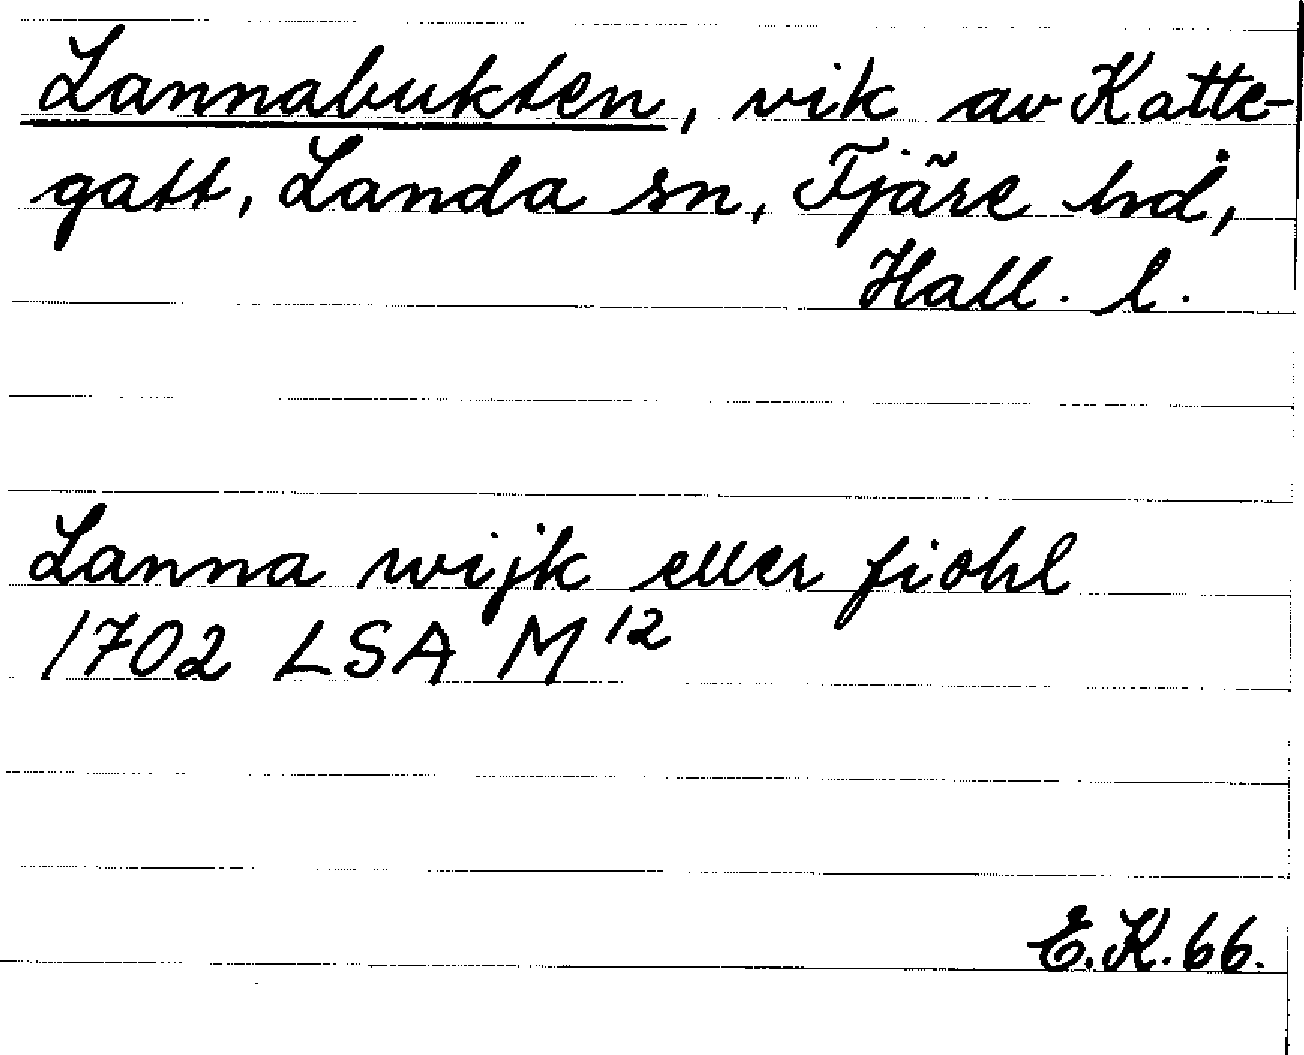 Lannabukten, vik av Katte-
gatt, Landa sn, Fjäre hd,
Hall. l.
Lanna wijk eller fiohl
1702 LSA M 12
E.K. 66.